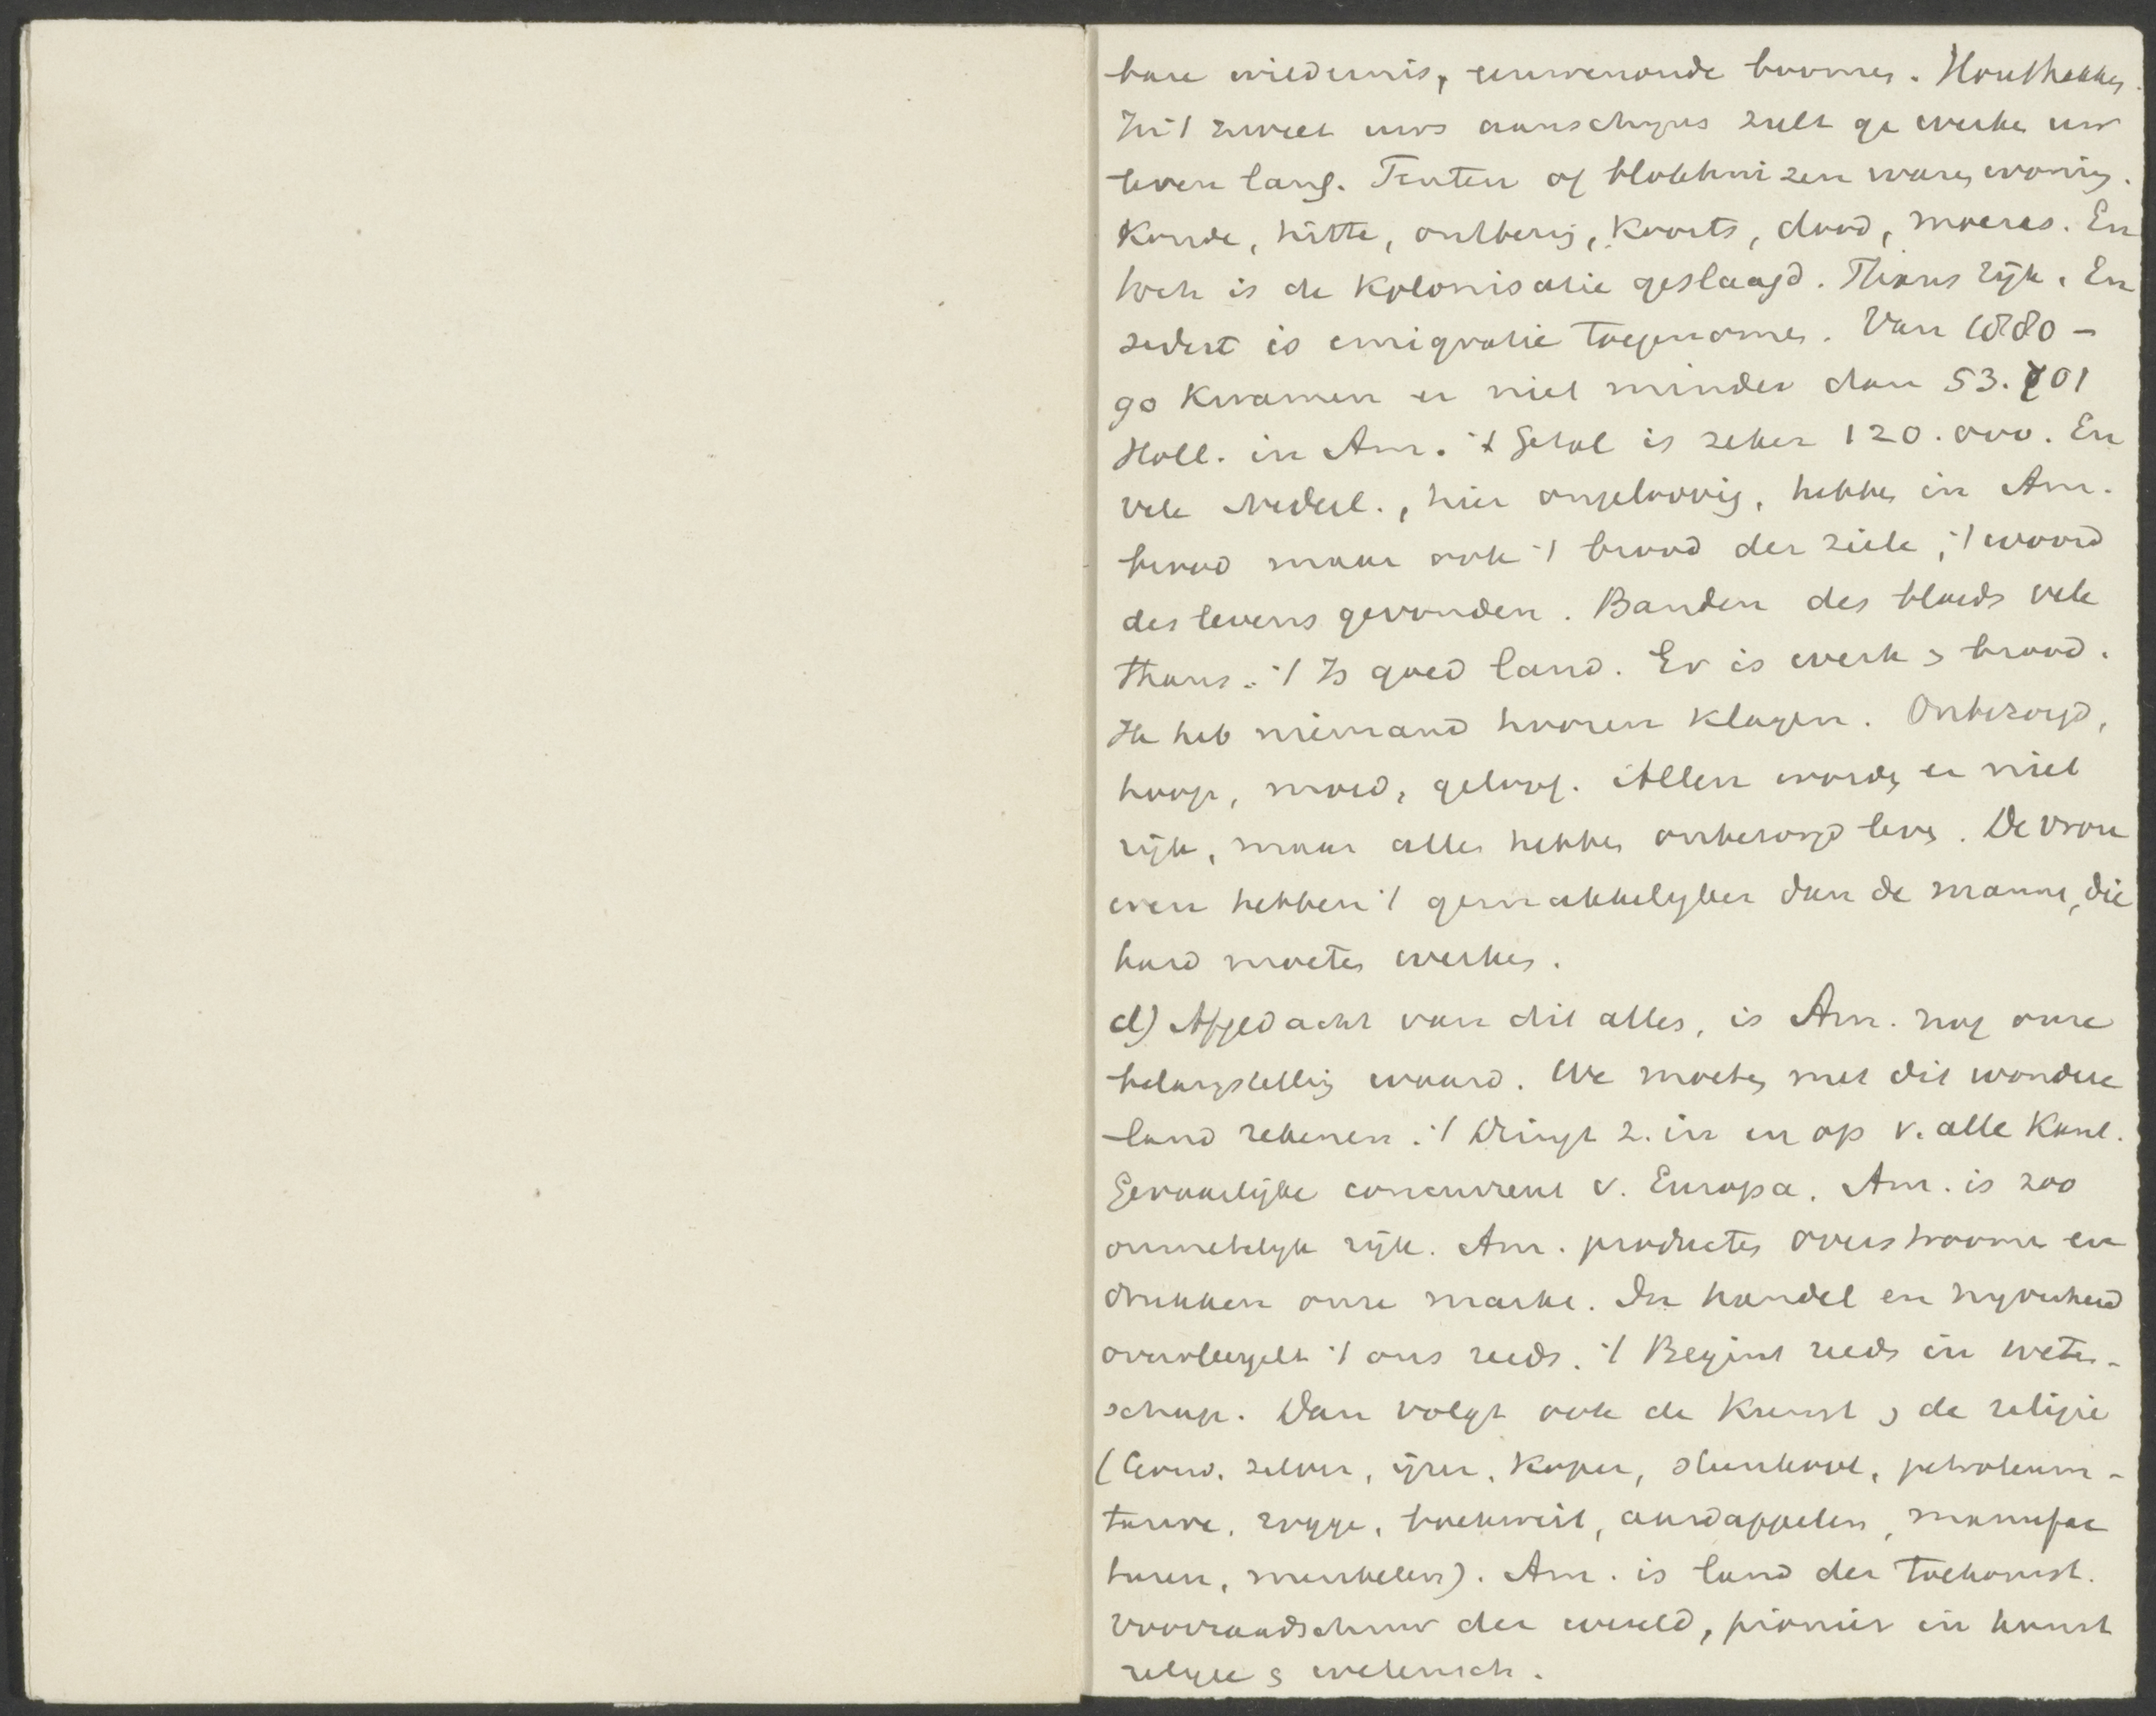 bare wildernis, eeuwenoude boomen. Houthakken.
In 't zweet uws aanschijns zult ge werken uw
leven lang. Tenten of blokhuizen waren woning.
Koude, hitte, ontbering, koorts, dood, moeras. En
toch is de kolonisatie geslaagd. Thans rijk. En
sedert is emigratie toegenomen. Van 1880-
90 kwamen er niet minder dan 53.701
Holl. in Am. 't Getal is zeker 120.000. En
vele Nederl., hier ongeloovig, hebben in Am.
brood maar ook 't brood der ziele, 't woord
des levens gevonden. Banden des bloeds vele
thans. 't Is goed land. Er is werk & brood.
Ik heb niemand hooren klagen. Onbezorgd,
hoop, moed, geloof. Allen worden er niet
rijk, maar allen hebben onbezorgd leven. De vrou
wen hebben 't gemakkelijker dan de mannen, die
hard moeten werken.
d) Afgedacht van dit alles, is Am. nog onze
belangstelling waard. We moeten met dit wondere
land rekenen. 't Dringt z. in en op v. alle kant.
Gevaarlijke concurrent v. Europa. Am. is zoo
onmetelijk rijk. Am. producten overstroomen en
drukken onze markt. In handel en nijverheid
overvleugelt 't ons reeds. 't Begint reeds in weten-
schap. Dan volgt ook de kunst & de religie
(Goud, zilver, ijzer, koper, steenkool, petroleum-
tarwe, rogge, boekweit, aardappelen, manufac
turen, meubelen). Am. is land der toekomst.
Vooraandschuw der wereld, pionier in kunst
religie & wetensch.